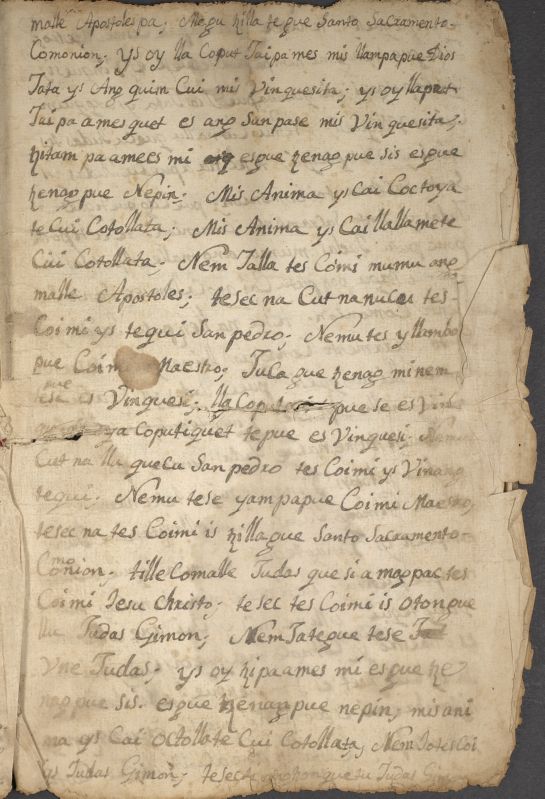 malle Apostoles pa; Mogu hilla te que Santo Sacramento-
Comonion; ys oy lla Coput Jaipames mis llampapue Dios
Tata ys Ang quim Cui mi Vinquesita; ys oy llaput
Jaipaames quet es ang Sanpase mis Vinquesita;
hitam paamees mi esque henag pue sis esque
henag pue Nepin; Mis Anima ys Cai Coctoya
te Cui Cotollata; Mis Anima ys Cai llallamete
Cui Cotollata; Nem Talla tes Coimi mumu ang
malle Apostoles; tesec na Cut nanucu tes-
Coimi ys tequi San pedro; Nemu tes yllambo
pue Coimi Maestro; Tuca que henag mi nem
pue
tese es Vinquesi; lla Cop pue se es Vin
ya Coputiquet te pue es Vinquesi; Nemu
Cut na llu quecu San pedro tes Coimi ys Vinang
tequi; Nemu tese yampapue Coimi Maestro,
tesec na tes Coimi is hillaque Santo Sacramento-
Comonion; tille Comalle Judas que si a mag pac tes
Coimi Jesu Christo; tesec tes Coimi is Otongue
llu Judas Gimon; Nem Tatepue tese
Vne Judas; ys oy hipaames mi esque he
nag pue sis. esque henag pue nepin; mis ani
ma ys Cai Octollate Cui Cotollata; Nem Totes Coi
ys Judas Gimon; tesecte Judas